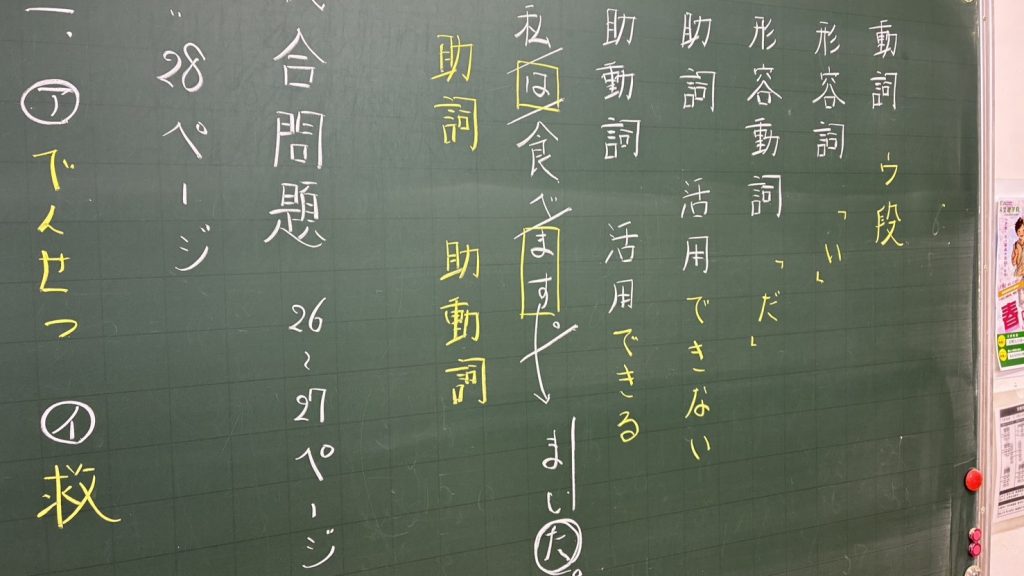 動詞 ウ段
形容詞 「い」
形容動詞 「だ」
助詞 活用できない
助動詞 活用できる
私は食べます。
ました。
助詞 助動詞
合問題 26~27ページ
〃 28ページ
一.㋐でんせつ ㋑救
春